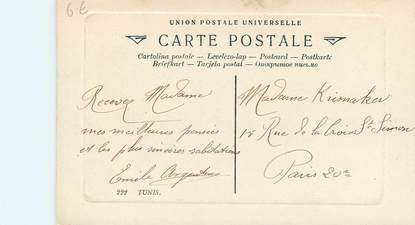 6€
UNION POSTALE UNIVERSELLE
CARTE POSTALE
Cartolina postale — Levelezo-lap — Postcard — Postkarte
Briefkart — Tarjeta postal — Открытое письмо.
Recevez Madame
mes meilleures pensées
et les plus sincères salutations
Emile
222 TUNIS.
Madame
12 Rue de la Croix St Simon
Paris 20e